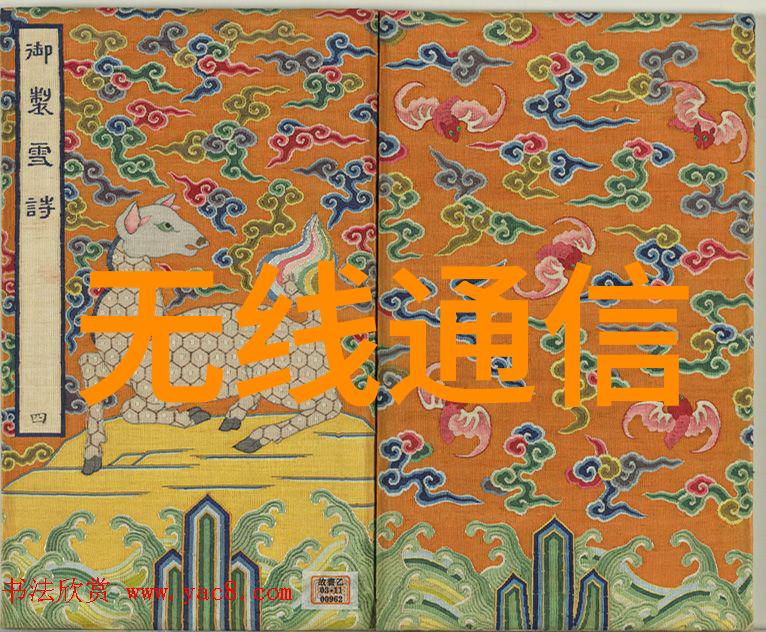 御製雪詩
四
无线通信
书法欣赏 www.yac8.com
故書乙
03•11
00962